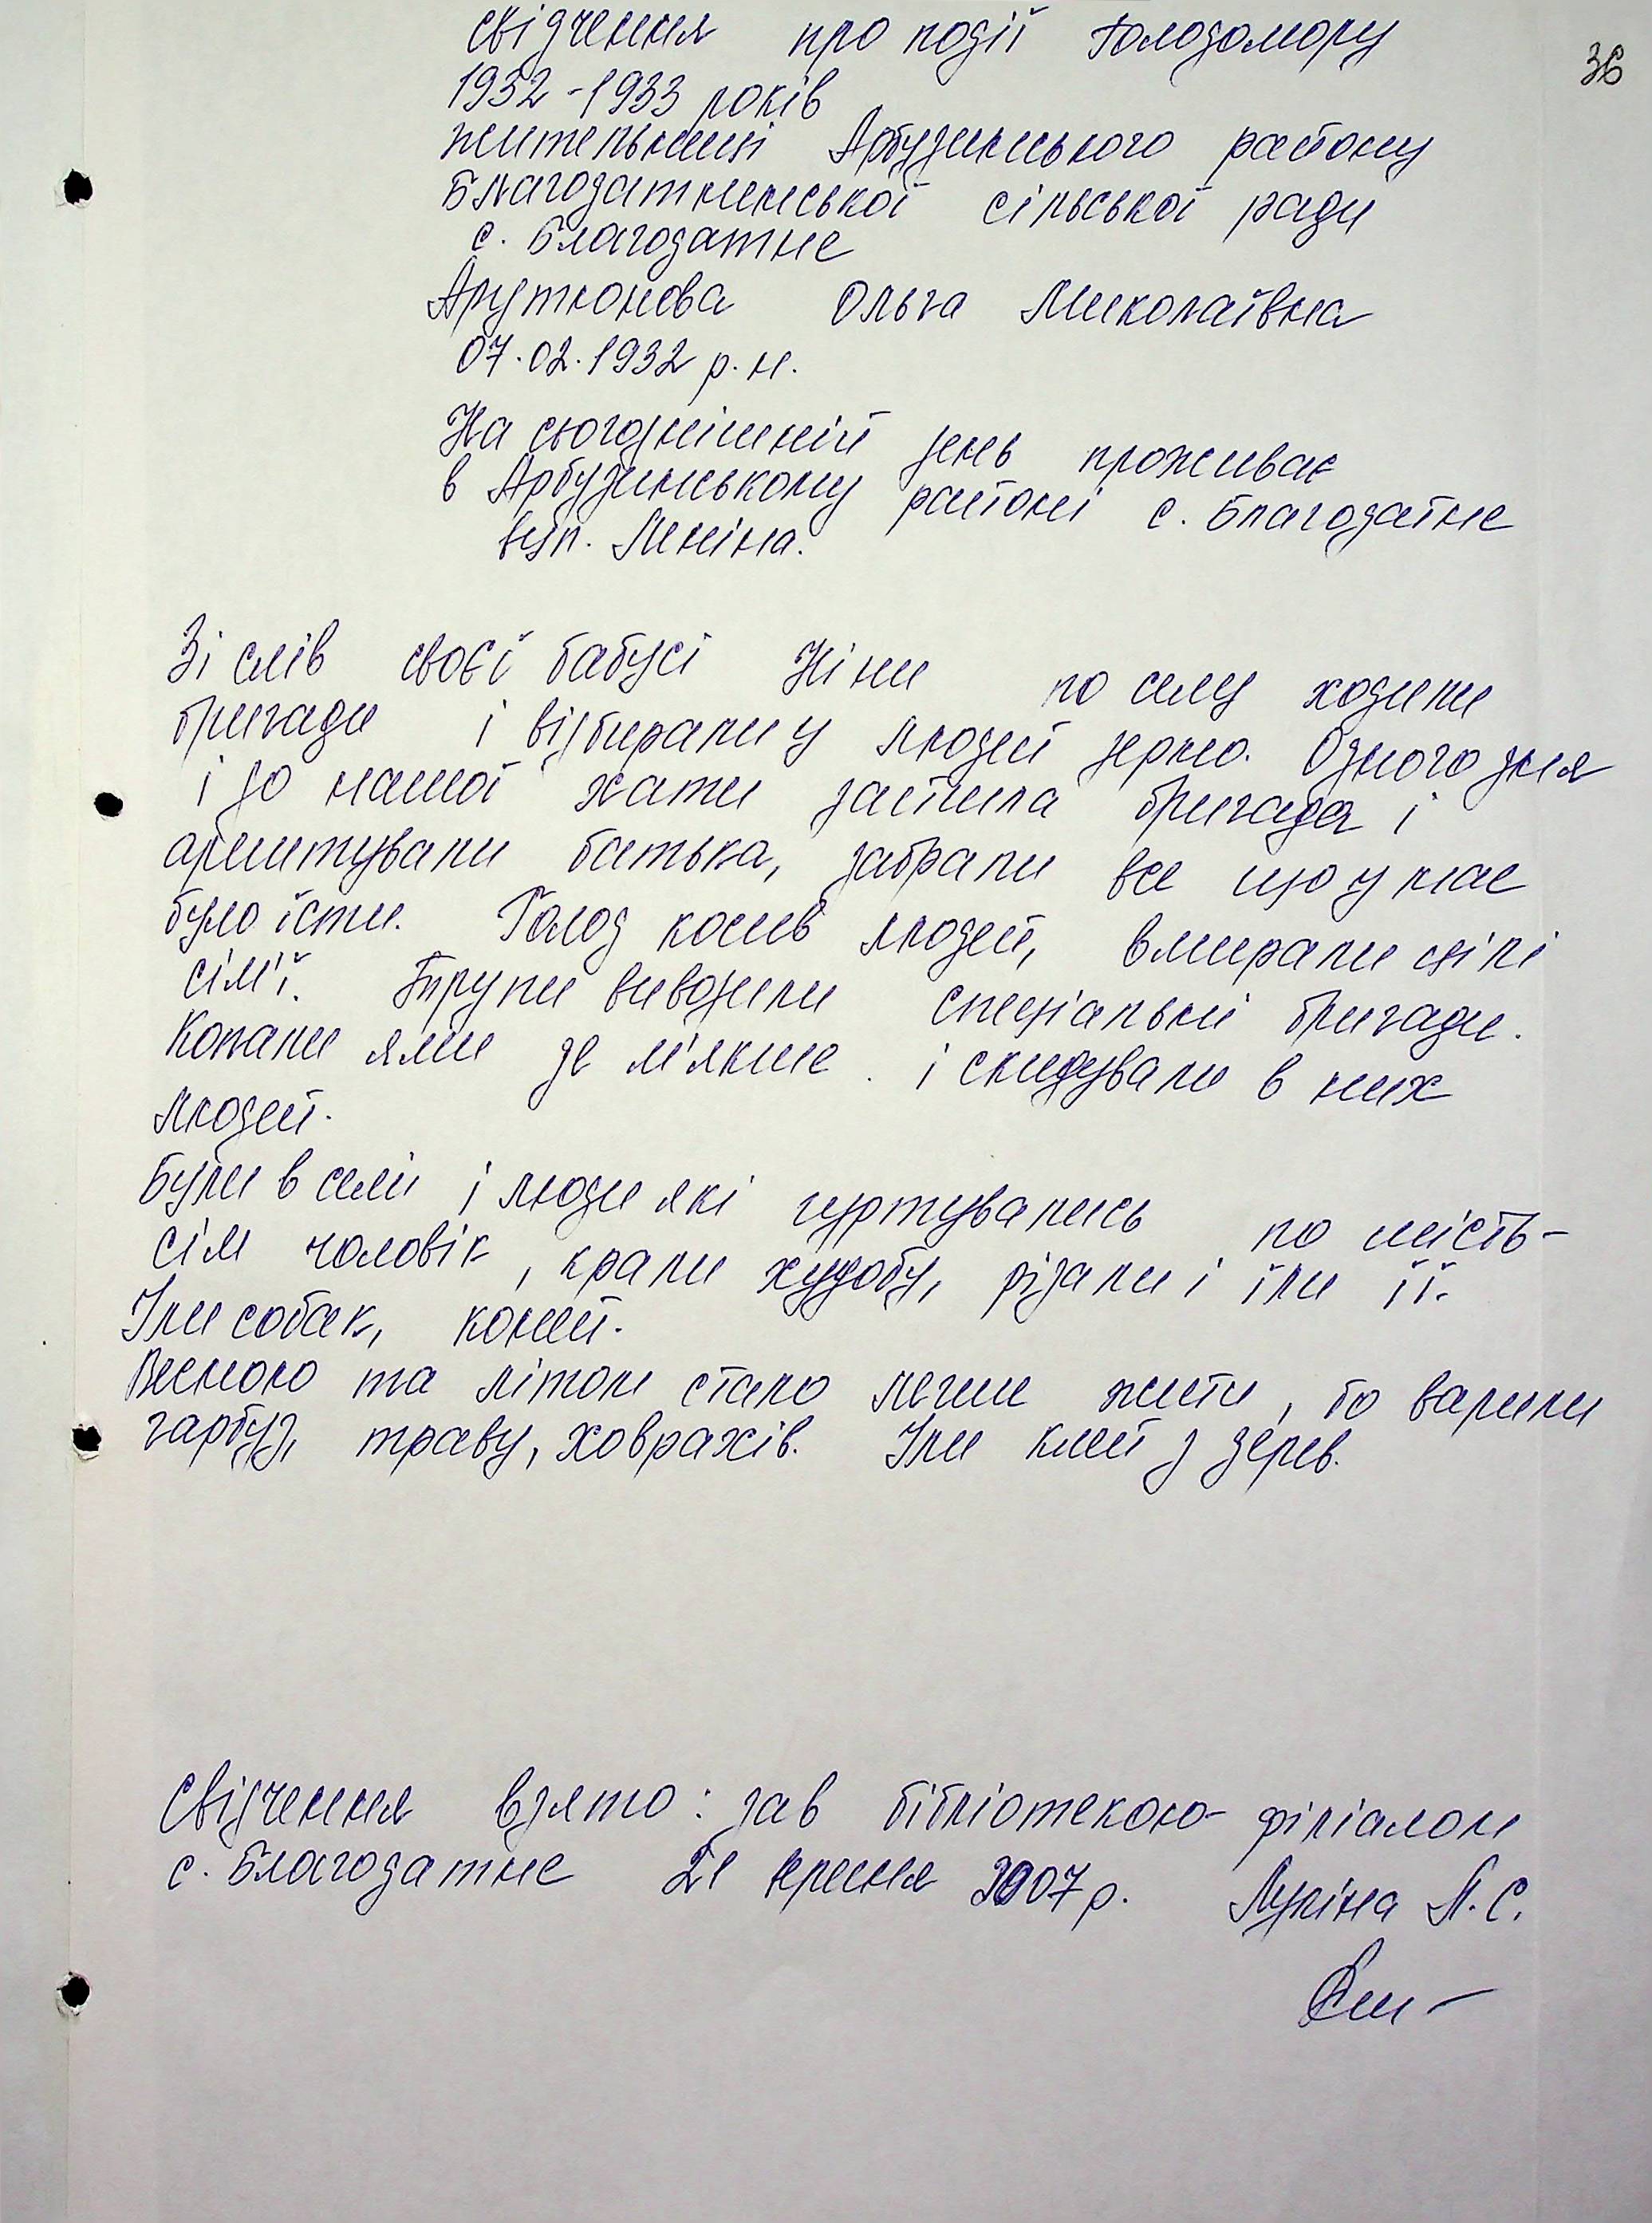 36
свідчення про події Голодомору
1932-1933 років
жительниці Арбузинського району
Благодатненської сільської ради
с. Благодатне
Арутюнова Ольга Миколаївна
07.02.1932 р.н.
На сьогоднішній день проживає
в Арбузинському районі с. Благодатне
вул. Леніна.
Зі слів своєї бабусі Ніни по селу ходили
бригади і відбирали у людей зерно. Одного дня
і до нашої хати зайшла бригада і
арештували батька, забрали все що у нас
було їсти. Голод косив людей, вмирали цілі
сім'ї. Трупи вивозили спеціальні бригади.
Копали ями де м'якше. і скидували в них
людей.
Були в селі і люди які гуртувались по шість-
сім чоловік, крали худобу, різали і їли її.
Їли собак, коней.
Весною та літом стало легше жити, бо варили
гарбуз, траву, ховрахів. Їли клей з дерев.
Свідчення взято: зав бібліотекою-філіалом
с. Благодатне 21 серпня 2007 р. Лупіна Л.С.